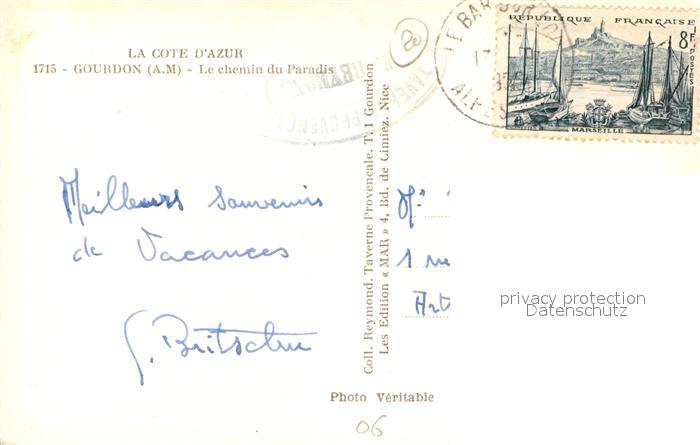 LA COTE D'AZUR
1715 - GOURDON (A.M) - Le chemin du Paradis
Meilleurs souvenirs
de Vacances
Coll. Reymond. Taverne Provencale. T. 1 Gourdon
Les Edition « MAR » 4, Bd. de Cimiez. Nice
Photo Véritable
06
20
LE BAR SUR
17
REPUBLIQUE FRANÇAISE
8F
POSTES
MARSEILLE
1
privacy protection
Datenschutz